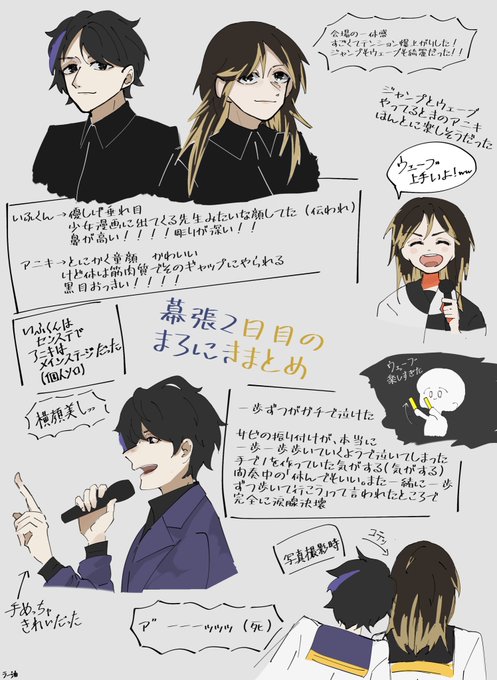 会場の一体感
すごくてテンション爆上がりした！
ジャンプもウェーブも綺麗だった！！
ジャンプとウェーブ
やってるときのアニキ
ほんとに楽しそうだった
ウェーブ
上手いよ！ww
いふくん→優しげ垂れ目
少女漫画に出てくる先生みたいな顔してた（伝われ）
鼻が高い！！！！彫りが深い！！
アニキ→とにかく童顔 かわいい
けど体は筋肉質でそのギャップにやられる
黒目おっきい！！！！
幕張2日目の
まろにきまとめ
いふくんは
センステで
アニキは
メインステージだった
（個人ソロ）
横顔美しッッ
ウェーブ
楽しすぎた
一歩ずつがガチで泣けた
サビの振り付けが、本当に
一歩一歩歩いていくようで泣いてしまった
手で1を作っていた気がする（気がする）
間奏中の「休んでもいい。また一緒に一歩
ずつ歩いて行こう」って言われたところで
完全に涙腺決壊
手めっちゃ
きれいだった
写真撮影時
コテッ
ア゛ーーーッッッ（死）